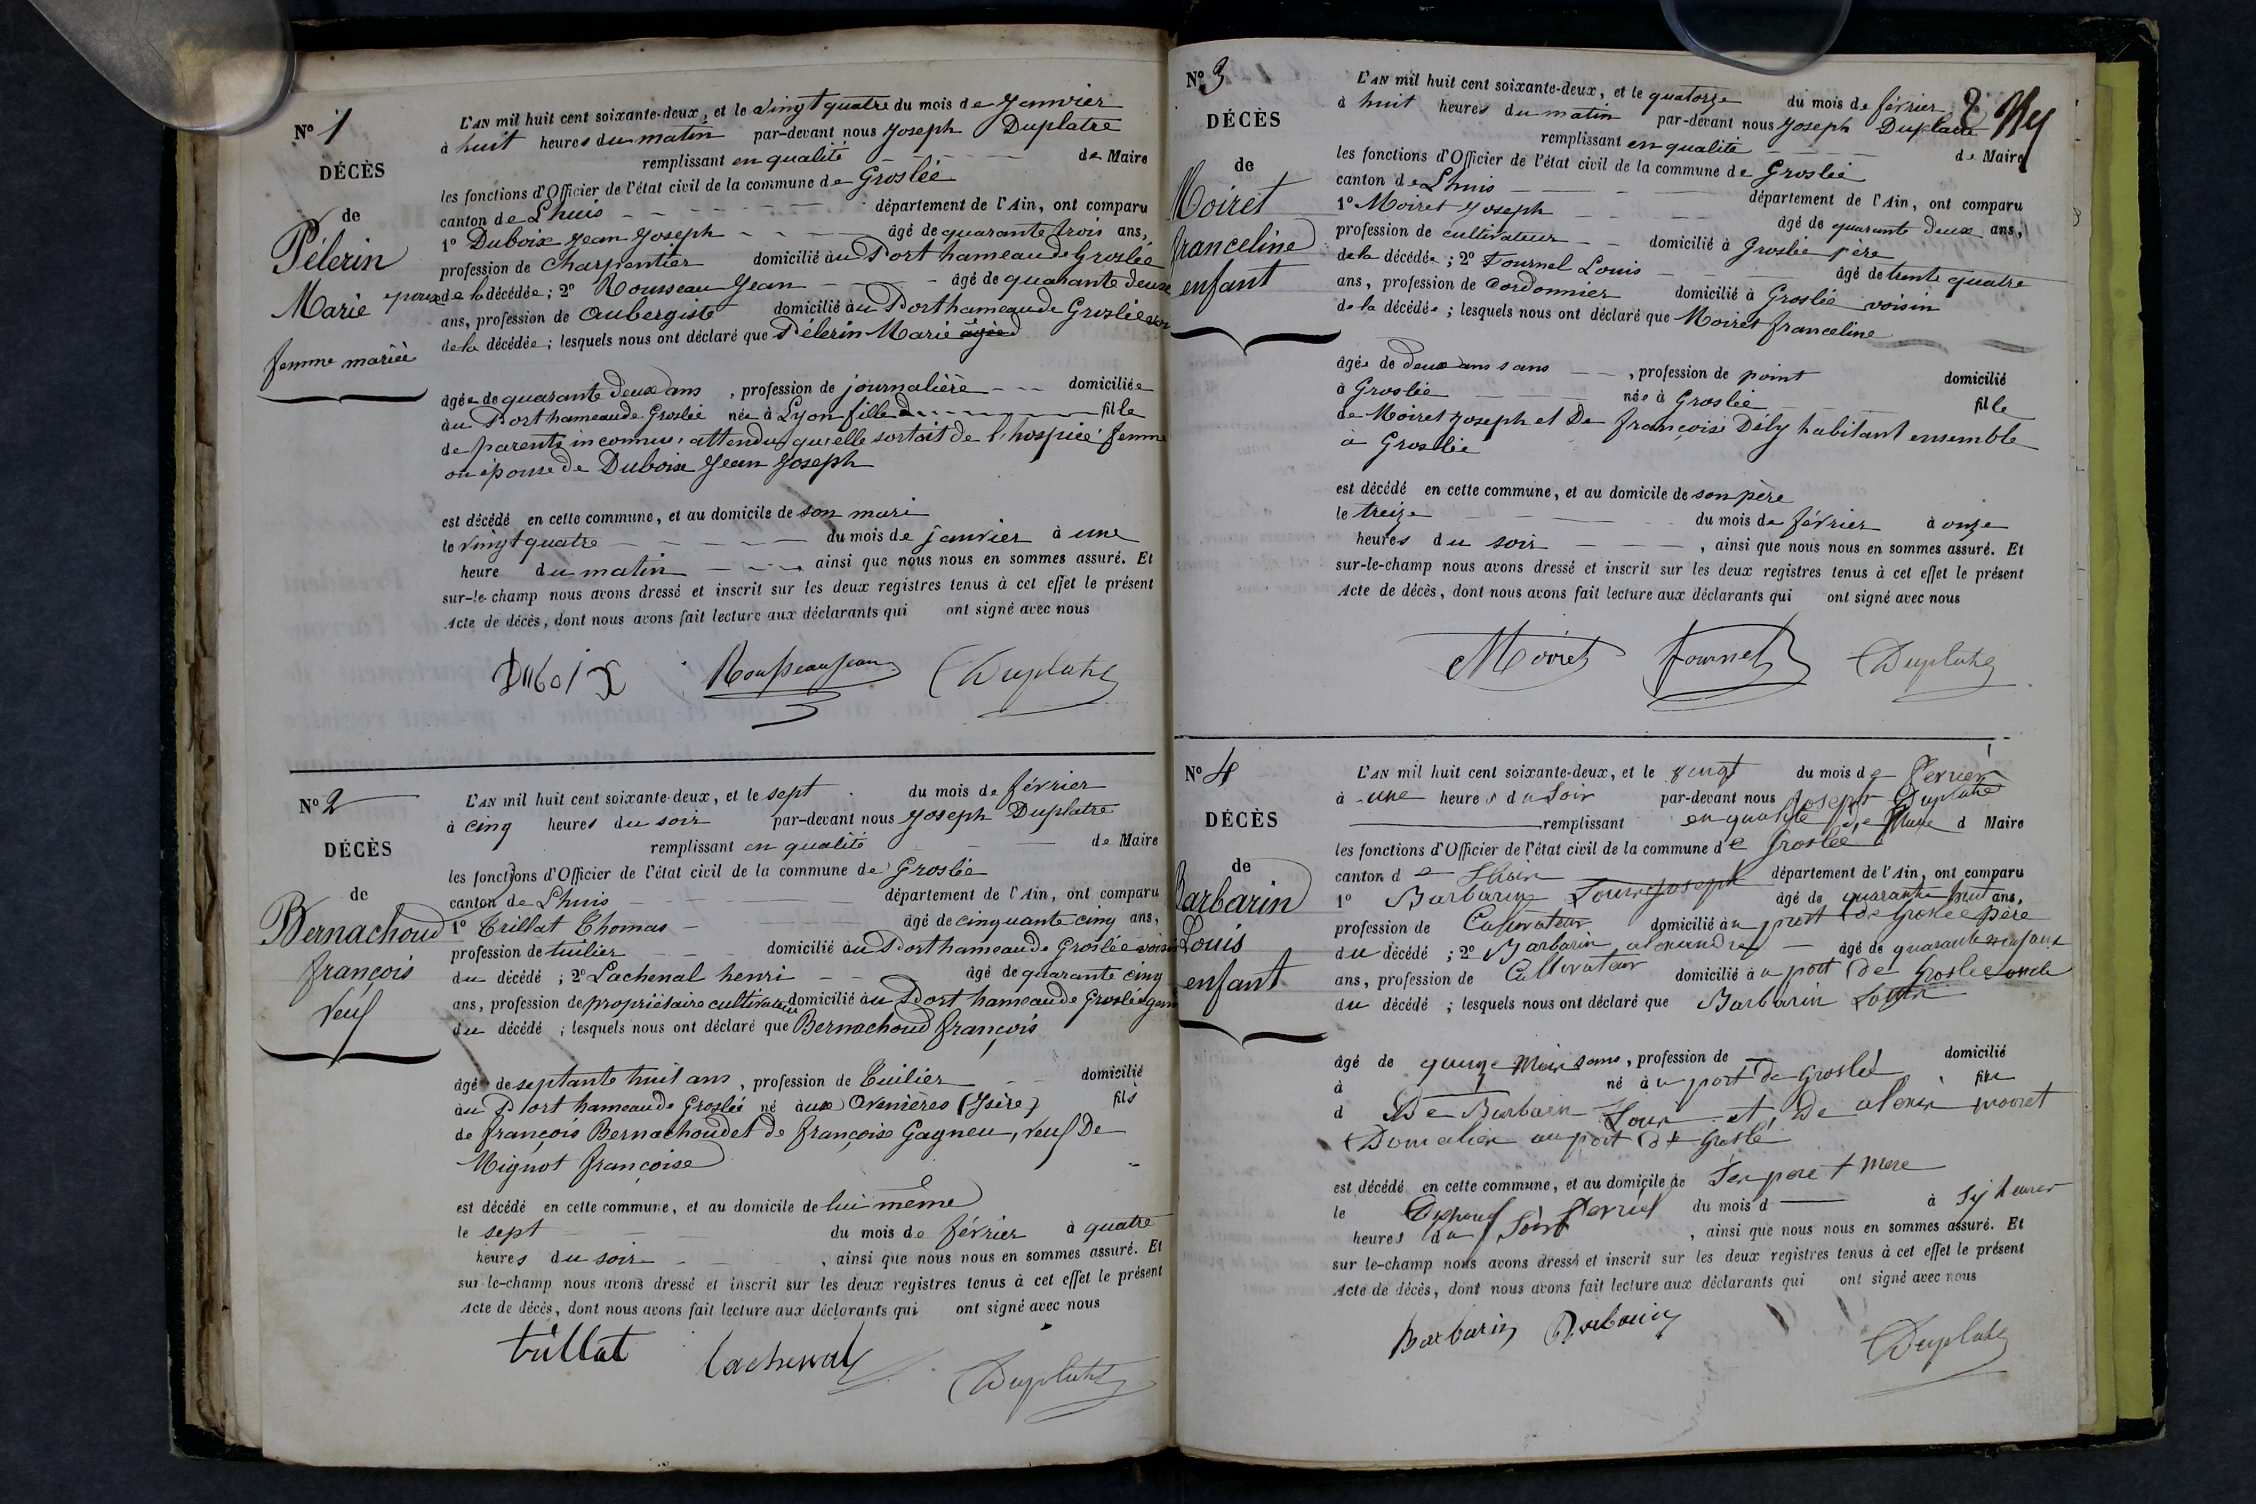 N° 1
DÉCÈS
de
Pélerin
Marie
femme mariée
L'AN mil huit cent soixante-deux, et le vingt quatre du mois de Janvier
à huit heures du matin par-devant nous Joseph Duplatre
remplissant en qualité de Maire
les fonctions d'Officier de l'état civil de la commune de Groslée
canton de Lhuis département de l'Ain, ont comparu
1° Duboix Jean Joseph âgé de quarante trois ans,
profession de charpentier domicilié au Port hameau de Groslée
époux de la décédée ; 2° Rousseau Jean âgé de quarante deux
ans, profession de Aubergiste domicilié au Port hameau de Groslée
de la décédée ; lesquels nous ont déclaré que Pélerin Marie âgée
âgée de quarante deux ans , profession de journalière domiciliée
au Port hameau de Groslée née à Lyon fille d fille
de parents inconnus, attendu qu'elle sortait de l'hospice femme
ou épouse de Duboix Jean Joseph
est décédé en cette commune, et au domicile de son mari
le vingt quatre du mois de janvier à une
heure du matin ainsi que nous nous en sommes assuré. Et
sur-le-champ nous avons dressé et inscrit sur les deux registres tenus à cet effet le présent
Acte de décès, dont nous avons fait lecture aux déclarants qui ont signé avec nous
Duboix Rousseau Jean Duplatre
N° 2
DÉCÈS
de
Bernachoud
françois
veuf
L'AN mil huit cent soixante-deux, et le sept du mois de février
à cinq heures du soir par-devant nous Joseph Duplatre
remplissant en qualité de Maire
les fonctions d'Officier de l'état civil de la commune de Groslée
canton de Lhuis département de l'Ain, ont comparu
1° Trillat Thomas âgé de cinquante cinq ans,
profession de tuilier domicilié au Port hameau de Groslée voisin
du décédé ; 2° Lachenal henri âgé de quarante cinq
ans, profession de propriétaire cultivateur domicilié au Port hameau de Groslée
du décédé ; lesquels nous ont déclaré que Bernachoud françois
âgé de septante huit ans , profession de Tuilier domicilié
au Port hameau de Groslée né aux Avenières (Isère) fils
de françois Bernachoud et de françoise Gagneu, veuf De
Mignot françoise
est décédé en cette commune, et au domicile de lui même
le sept du mois de février à quatre
heures du soir , ainsi que nous nous en sommes assuré. Et
sur-le-champ nous avons dressé et inscrit sur les deux registres tenus à cet effet le présent
Acte de décès, dont nous avons fait lecture aux déclarants qui ont signé avec nous
trillat Lachenal Duplatre
N° 3
DÉCÈS
de
Moiret
franceline
enfant
L'AN mil huit cent soixante-deux, et le quatorze du mois de février
à huit heures du matin par-devant nous Joseph Duplatre
remplissant en qualité de Maire
les fonctions d'Officier de l'état civil de la commune de Groslée
canton de Lhuis département de l'Ain, ont comparu
1° Moiret Joseph âgé de quarante deux ans,
profession de cultivateur domicilié à Groslée père
de la décédée ; 2° Fournel Louis âgé de trente quatre
ans, profession de Cordonnier domicilié à Groslée voisin
de la décédée ; lesquels nous ont déclaré que Moiret franceline
âgée de deux ans sans , profession de point domicilié
à Groslée née à Groslée fille
de Moiret Joseph et De françoise Dély habitant ensemble
à Groslée
est décédé en cette commune, et au domicile de son père
le treize du mois de février à onze
heures du soir , ainsi que nous nous en sommes assuré. Et
sur-le-champ nous avons dressé et inscrit sur les deux registres tenus à cet effet le présent
Acte de décès, dont nous avons fait lecture aux déclarants qui ont signé avec nous
Moiret fournel Duplatre
N° 4
DÉCÈS
de
Barbarin
Louis
enfant
L'AN mil huit cent soixante-deux, et le vingt du mois de fevrier
à une heures du Soir par-devant nous Joseph Duplatre
remplissant en qualité de Maire d Maire
les fonctions d'Officier de l'état civil de la commune de Groslée
canton de Lhuis département de l'Ain, ont comparu
1° Barbarin Louis Joseph âgé de quarante huit ans,
profession de Cultivateur domicilié au port de Groslée père
du décédé ; 2° Barbarin alexandre âgé de quarante
ans, profession de Cultivateur domicilié au port de Groslée oncle
du décédé ; lesquels nous ont déclaré que Barbarin Louis
âgé de quinze Mois sans , profession de domicilié
à né au port de Groslée fils
d De Barbarin Louis et De moiret
Domicilier au port de Groslé
est décédé en cette commune, et au domicile de Son père + mere
le fevrier du mois d à heures
heures du Soir , ainsi que nous nous en sommes assuré. Et
sur le-champ nous avons dressé et inscrit sur les deux registres tenus à cet effet le présent
Acte de décès, dont nous avons fait lecture aux déclarants qui ont signé avec nous
Barbarin Barbarin Duplatre